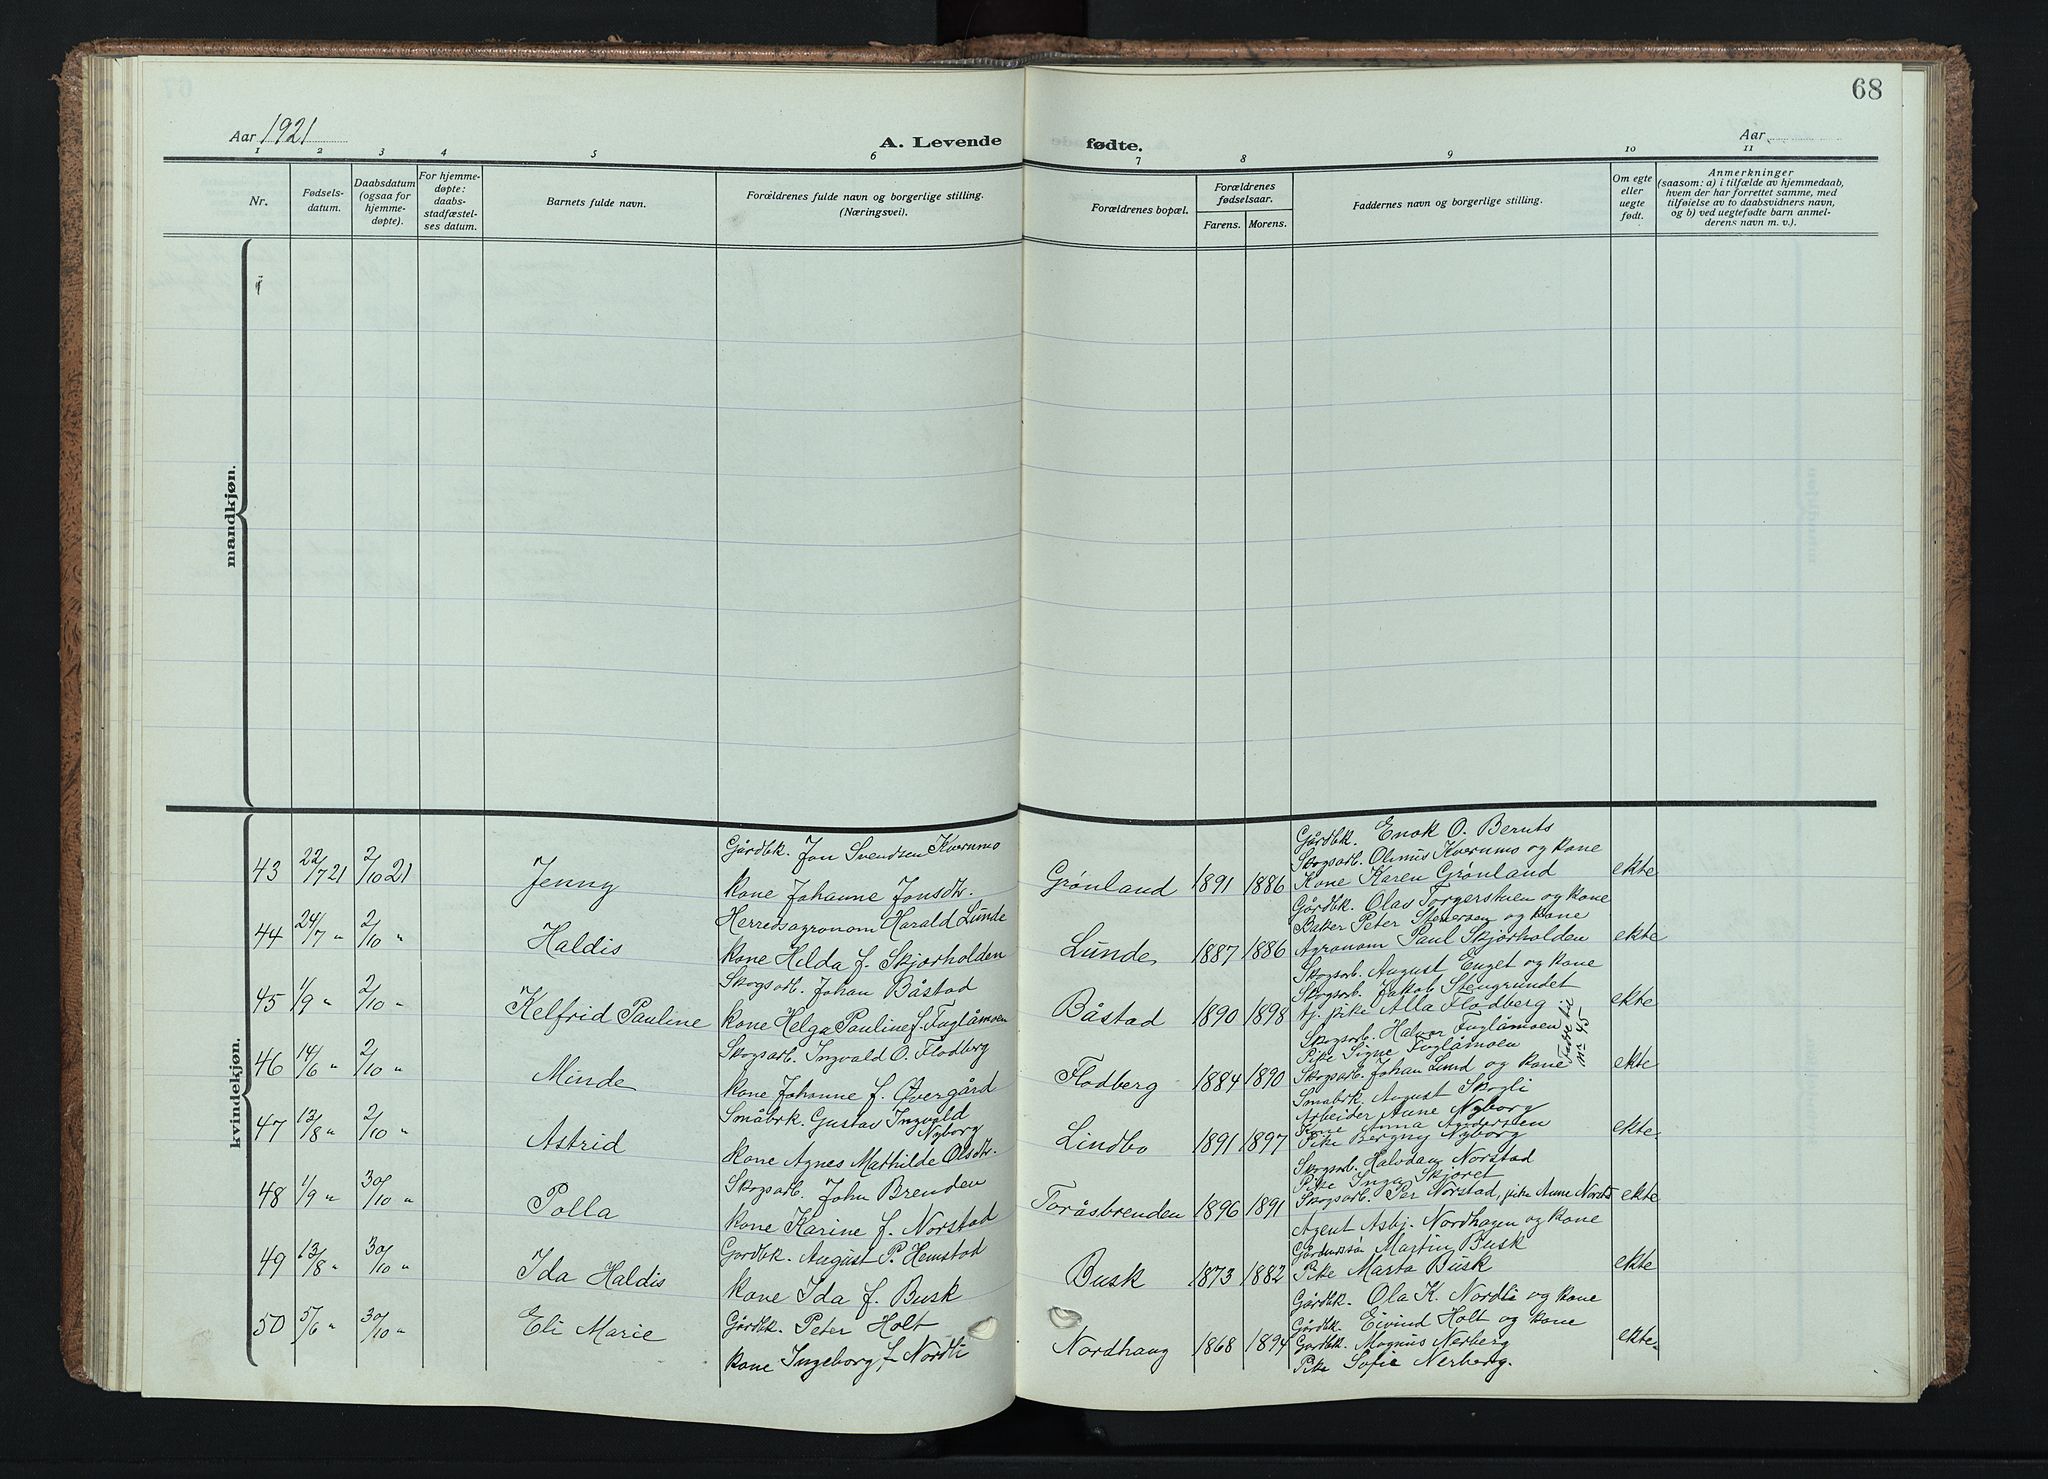 68
Aar 1921
A. Levende fødte.
Aar
1 2 3 4 5 6 7 8 9 10 11
Nr.
Fødsels-
datum.
Daabsdatum
(ogsaa for
hjemme-
døpte).
For hjemme-
døpte:
daabs-
stadfæstel-
ses datum.
Barnets fulde navn.
Forældrenes fulde navn og borgerlige stilling.
(Næringsvei).
Forældrenes bopæl.
Forældrenes
fødselsaar.
Farens. Morens.
Faddernes navn og borgerlige stilling.
Om egte
eller
uegte
født.
Anmerkninger
(saasom: a) i tilfælde av hjemmedaab,
hvem der har forrettet samme, med
tilføielse av to daabsvidners navn,
og b) ved uegtefødte barn anmel-
derens navn m. v.).
mandkjøn.
kvindekjøn.
43 22/7 21 2/10 21 Jenny
Gårdbk. Jon Svendsen Kvernmo
kone Johanne Jonsdtr.
Grønland 1891 1886
Gårdbk. Enok O. Bernts
Skogsarb. Olinus Kvernmo og kone
Kone Karen Grønland
ekte
44 24/7 " 2/10 " Haldis
Herredsagronom Harald Lunde
kone Hilda f. Skjørholden
Lunde 1887 1886
Gårdbk. Olav Torgerstuen og kone
Baker Peter Stenersen og kone
Agronom Paul Skjørholden
ekte
45 1/9 " 2/10 " Kelfrid Pauline
Skogsarb. Johan Båstad
kone Helga Pauline f. Fuglåmoen
Båstad 1890 1898
Skogsarb. August Enget og kone
Skogsarb. Jakob Stengrundet
tj. pike Alla Flodberg
ekte
46 14/6 " 2/10 " Minde
Skogsarb. Ingvald O. Flodberg
kone Johanne f. Øvergård
Flodberg 1884 1890
Skogsarb. Halvor Fuglåmoen
Pike Signe Fuglåmoen
nr 45
Skogsarb. Johan Lund og kone
ekte
47 13/8 " 2/10 " Astrid
Småbrk. Gustav Ingvald
Nyborg
kone Agnes Mathilde Olsdtr.
Lindbo 1891 1897
Småbrk. August Skogli
Arbeider Arne Nyborg
Kone Anna Andersen
Pike Bergny Nyborg
ekte.
48 1/9 " 30/10 " Polla
Skogsarb. John Brenden
kone Karine f. Norstad
Toråsbrenden 1896 1891
Skogsarb. Halvdan Norstad
Pike Inga Skjøret
Skogsarb. Per Norstad, pike Anne
ekte
49 13/8 " 30/10 " Ida Haldis
Gårdbk. August P. Hemstad
kone Ida f. Busk
Busk 1873 1882
Agent Asbj. Nordhagen og kone
Martin Busk
Pike Marta Busk
ekte
50 5/6 " 30/10 " Eli Marie
Gårdbk. Peter Holt
kone Ingeborg f. Nordli
Nordhaug 1868 1894
Gårdbk. Ola K. Nordli og kone
Gårdbk. Eivind Holt og kone
Gårdbk. Magnus Nerberg
Pike Sofie Nerberg.
ekte.